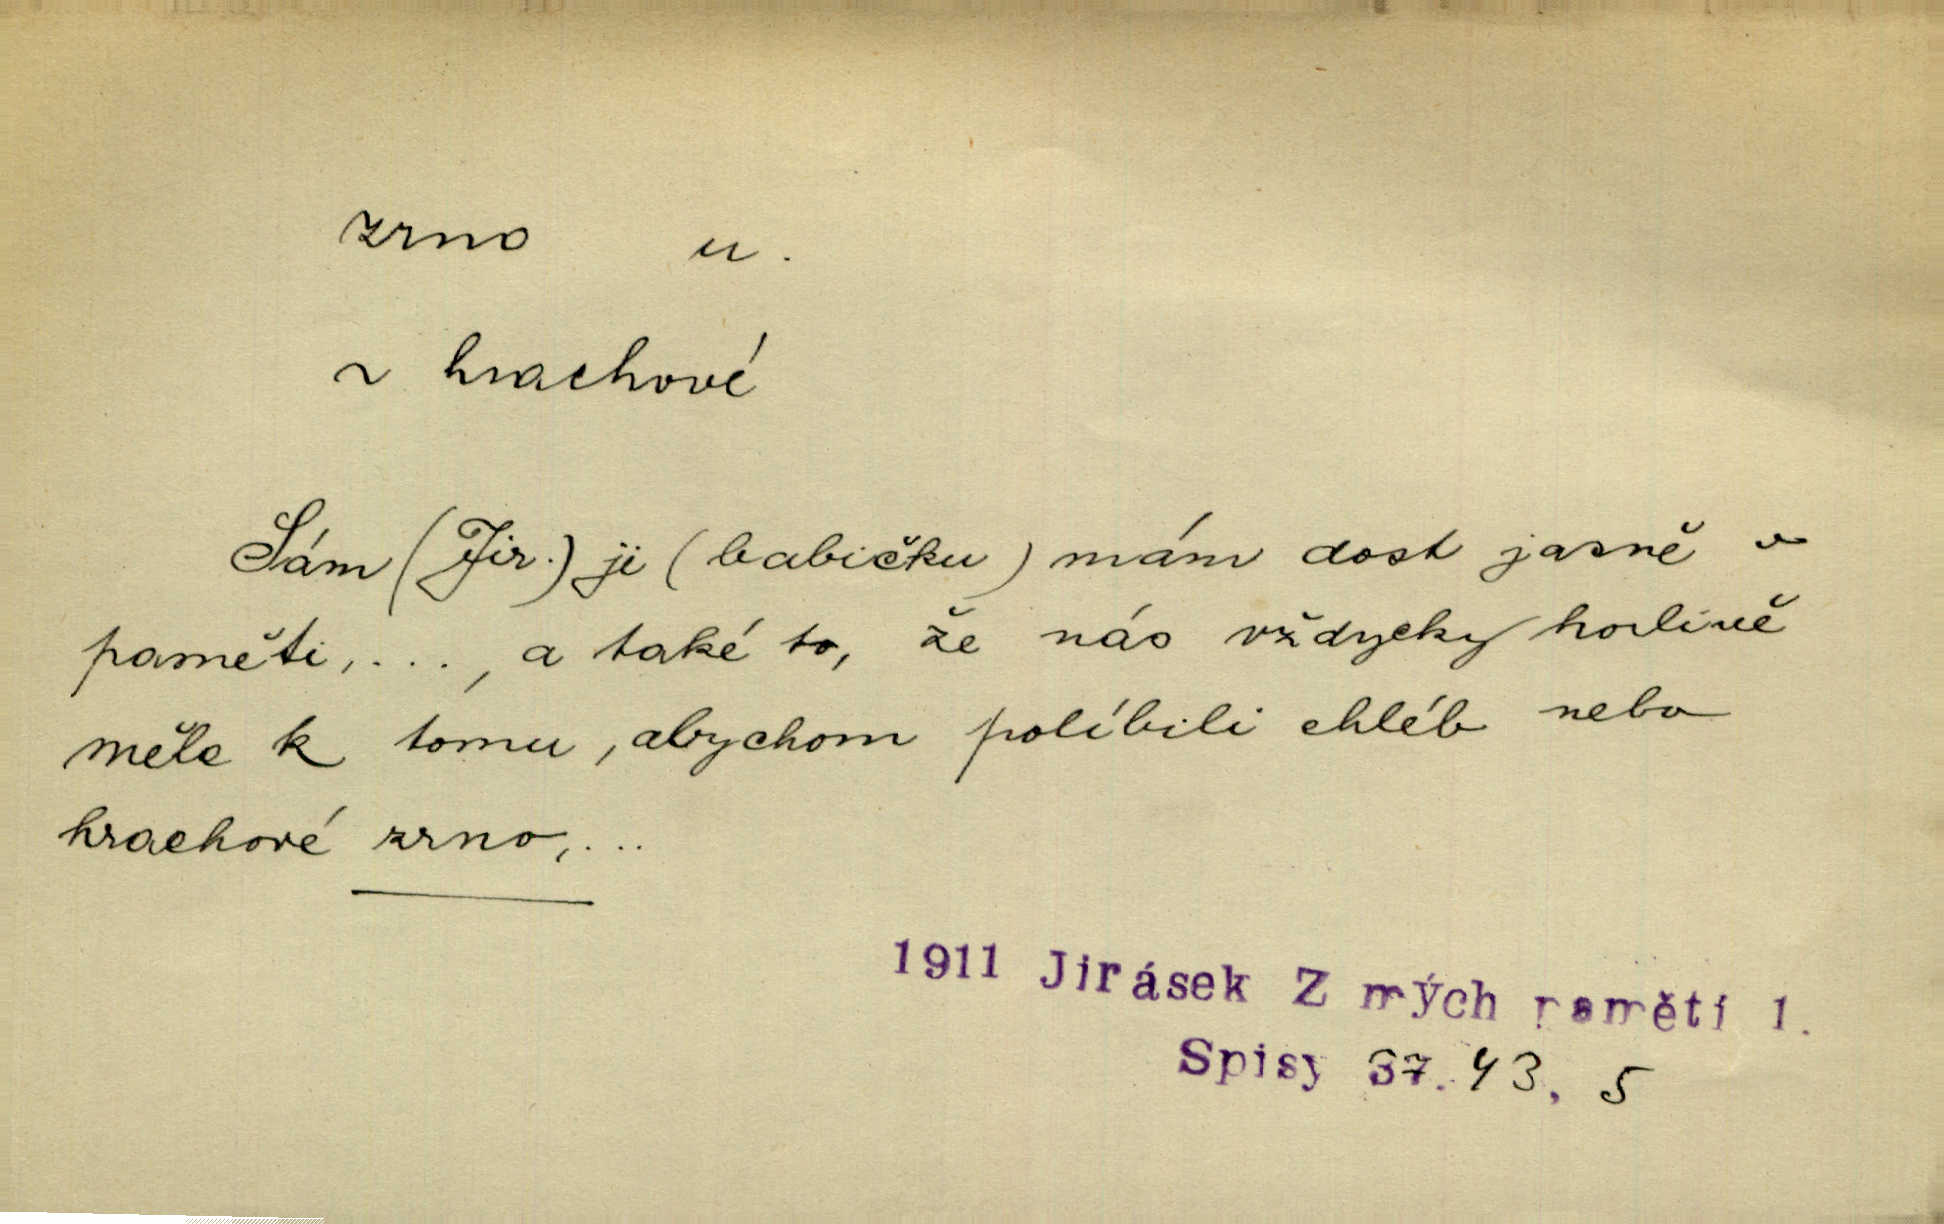 zrno u.
~ hrachové
Sám (Jir.) ji (babičku) mám dost jasně v
paměti,..., a také to, že nás vždycky horlivě
měla k tomu, abychom políbili chléb nebo
hrachové zrno,...
1911 Jirásek Z mých pamětí 1.
Spisy 37. 43, 5